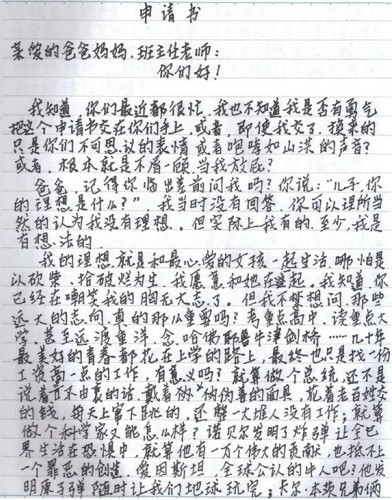 申请书
荣俊的爸爸妈妈.班主任老师:
你们好!
我知道,你们最近都很忙.我也不知道我是否有勇气
把这个申请书交在你们手上,或者,即使我交了.换来的
只是你们不可思议的表情或者咆哮如山洪的声音?
或者.根本就是不屑一顾.当我放屁?
爸爸.记得你临出差前问我吗?你说:“儿子,你
的理想是什么?”,我当时没有回答.你可以理所当
然的认为我没有理想。但实际上我有的.至少.我是
有想法的.
我的理想就是和最心爱的女孩一起生活.哪怕是
以砍柴.拾破烂为生.我愿意和她在一起。我知道.你
已经在嘲笑我的胸无大志了.但我不禁想问.那些
远大的志向.真的那么重要吗?考重点高中.读重点大
学.甚至远渡重洋.念哈佛耶鲁牛津剑桥……几十年
最美好的青春都花在上学的路上,最终也只是找一份
工资高一点的工作,有意义吗?就算做个总统.还不是
说着口不由衷的话.戴着伪善的面具,花着老百姓交
的钱.每天上窜下跳的,还整一大堆人没有工作;就算
做个科学家又能怎么样?诺贝尔发明了炸弹让全世
界生活在恐惧中,就算他有一万个伟大的贡献.也抵不上
一个罪恶的创造.爱因斯坦.全球公认的牛人吧?他发
明原子弹随时让我们地球玩完;卡尔·本茨兄弟俩